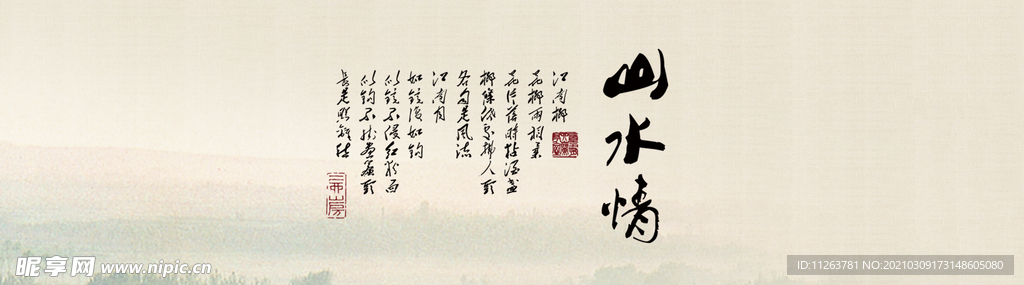 山水情
江南柳
花柳两相柔
花片落时粘酒盏
柳条低处拂人头
各自是风流
江南月
如镜复如钩
似镜不侵红粉面
似钩不挂画帘头
长是照离愁
昵享网 www.nipic.cn
ID:11263781 NO:20210309173148605080